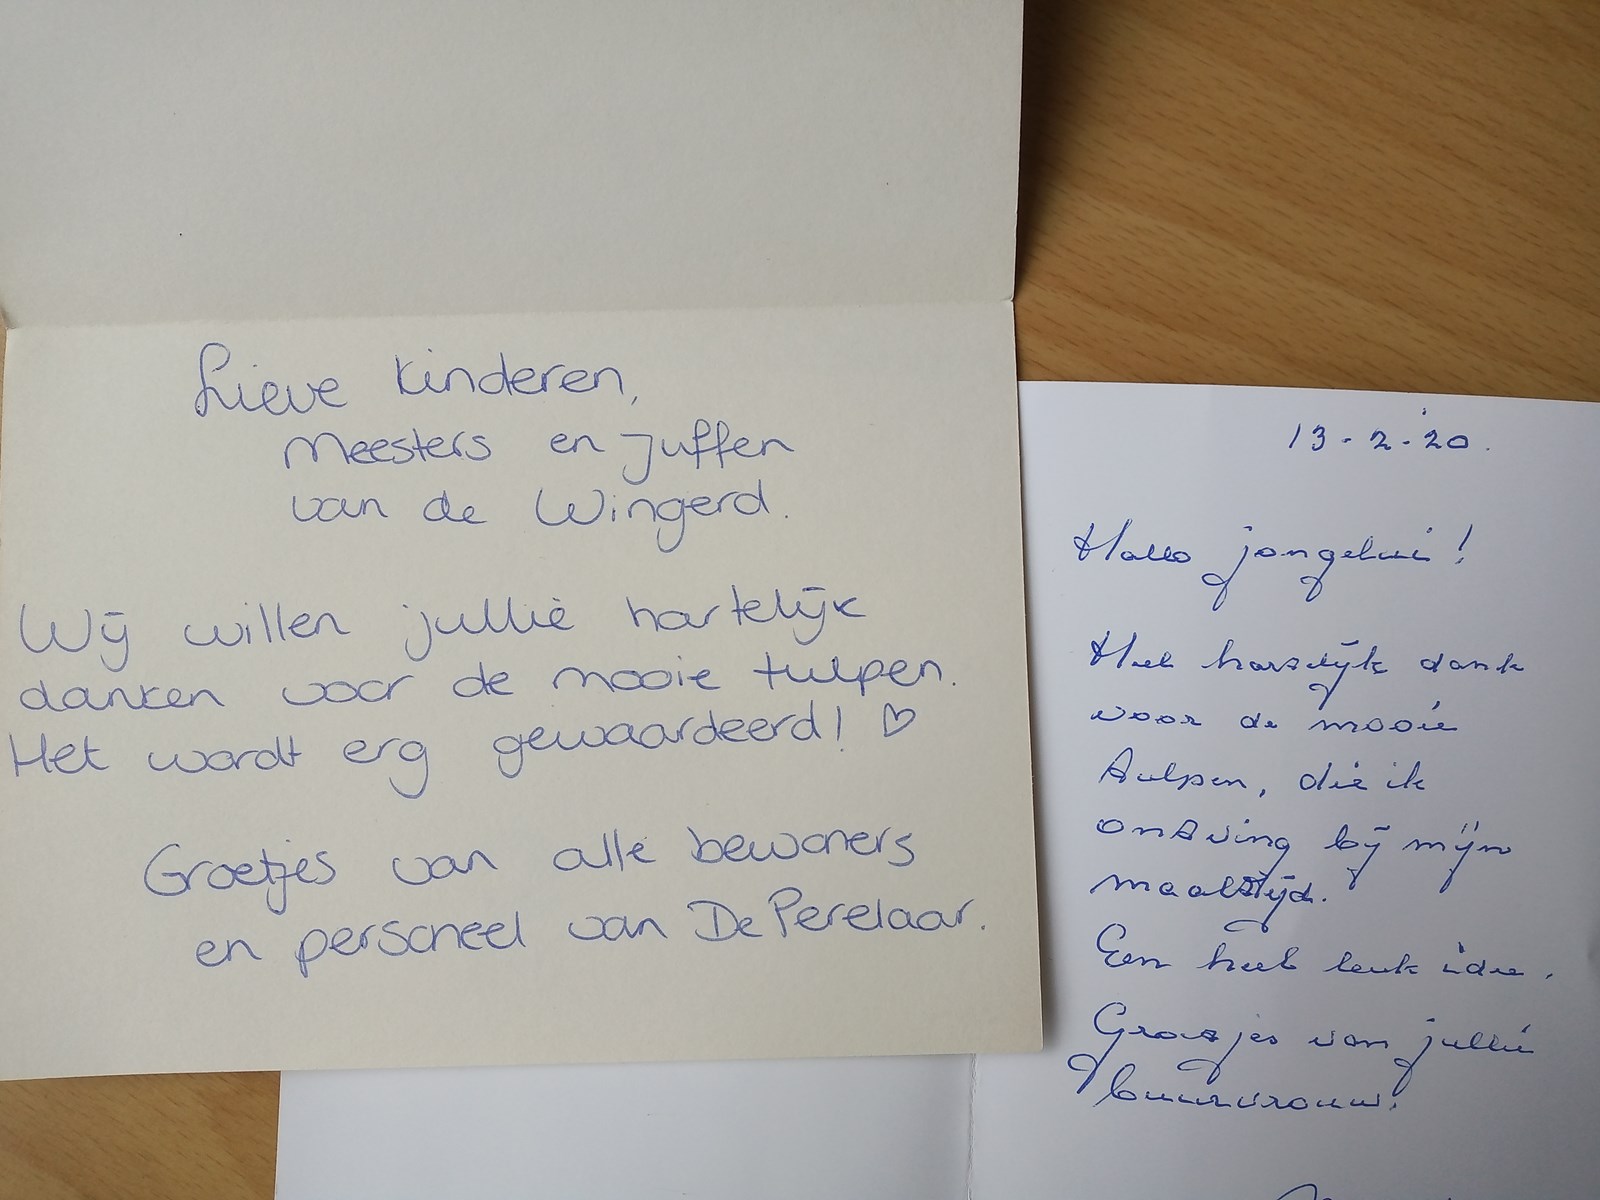 Lieve kinderen,
Meesters en Juffen
van de Wingerd.
Wij willen jullie hartelijk
danken voor de mooie tulpen.
Het wordt erg gewaardeerd! ♡
Groetjes van alle bewoners
en personeel van De Perelaar.
13-2-'20.
Hallo jongelui!
Heel hartelijk dank
voor de mooie
tulpen, die ik
ontving bij mijn
maaltijd.
Een heel leuk idee.
Groetjes van jullie
buurvrouw.